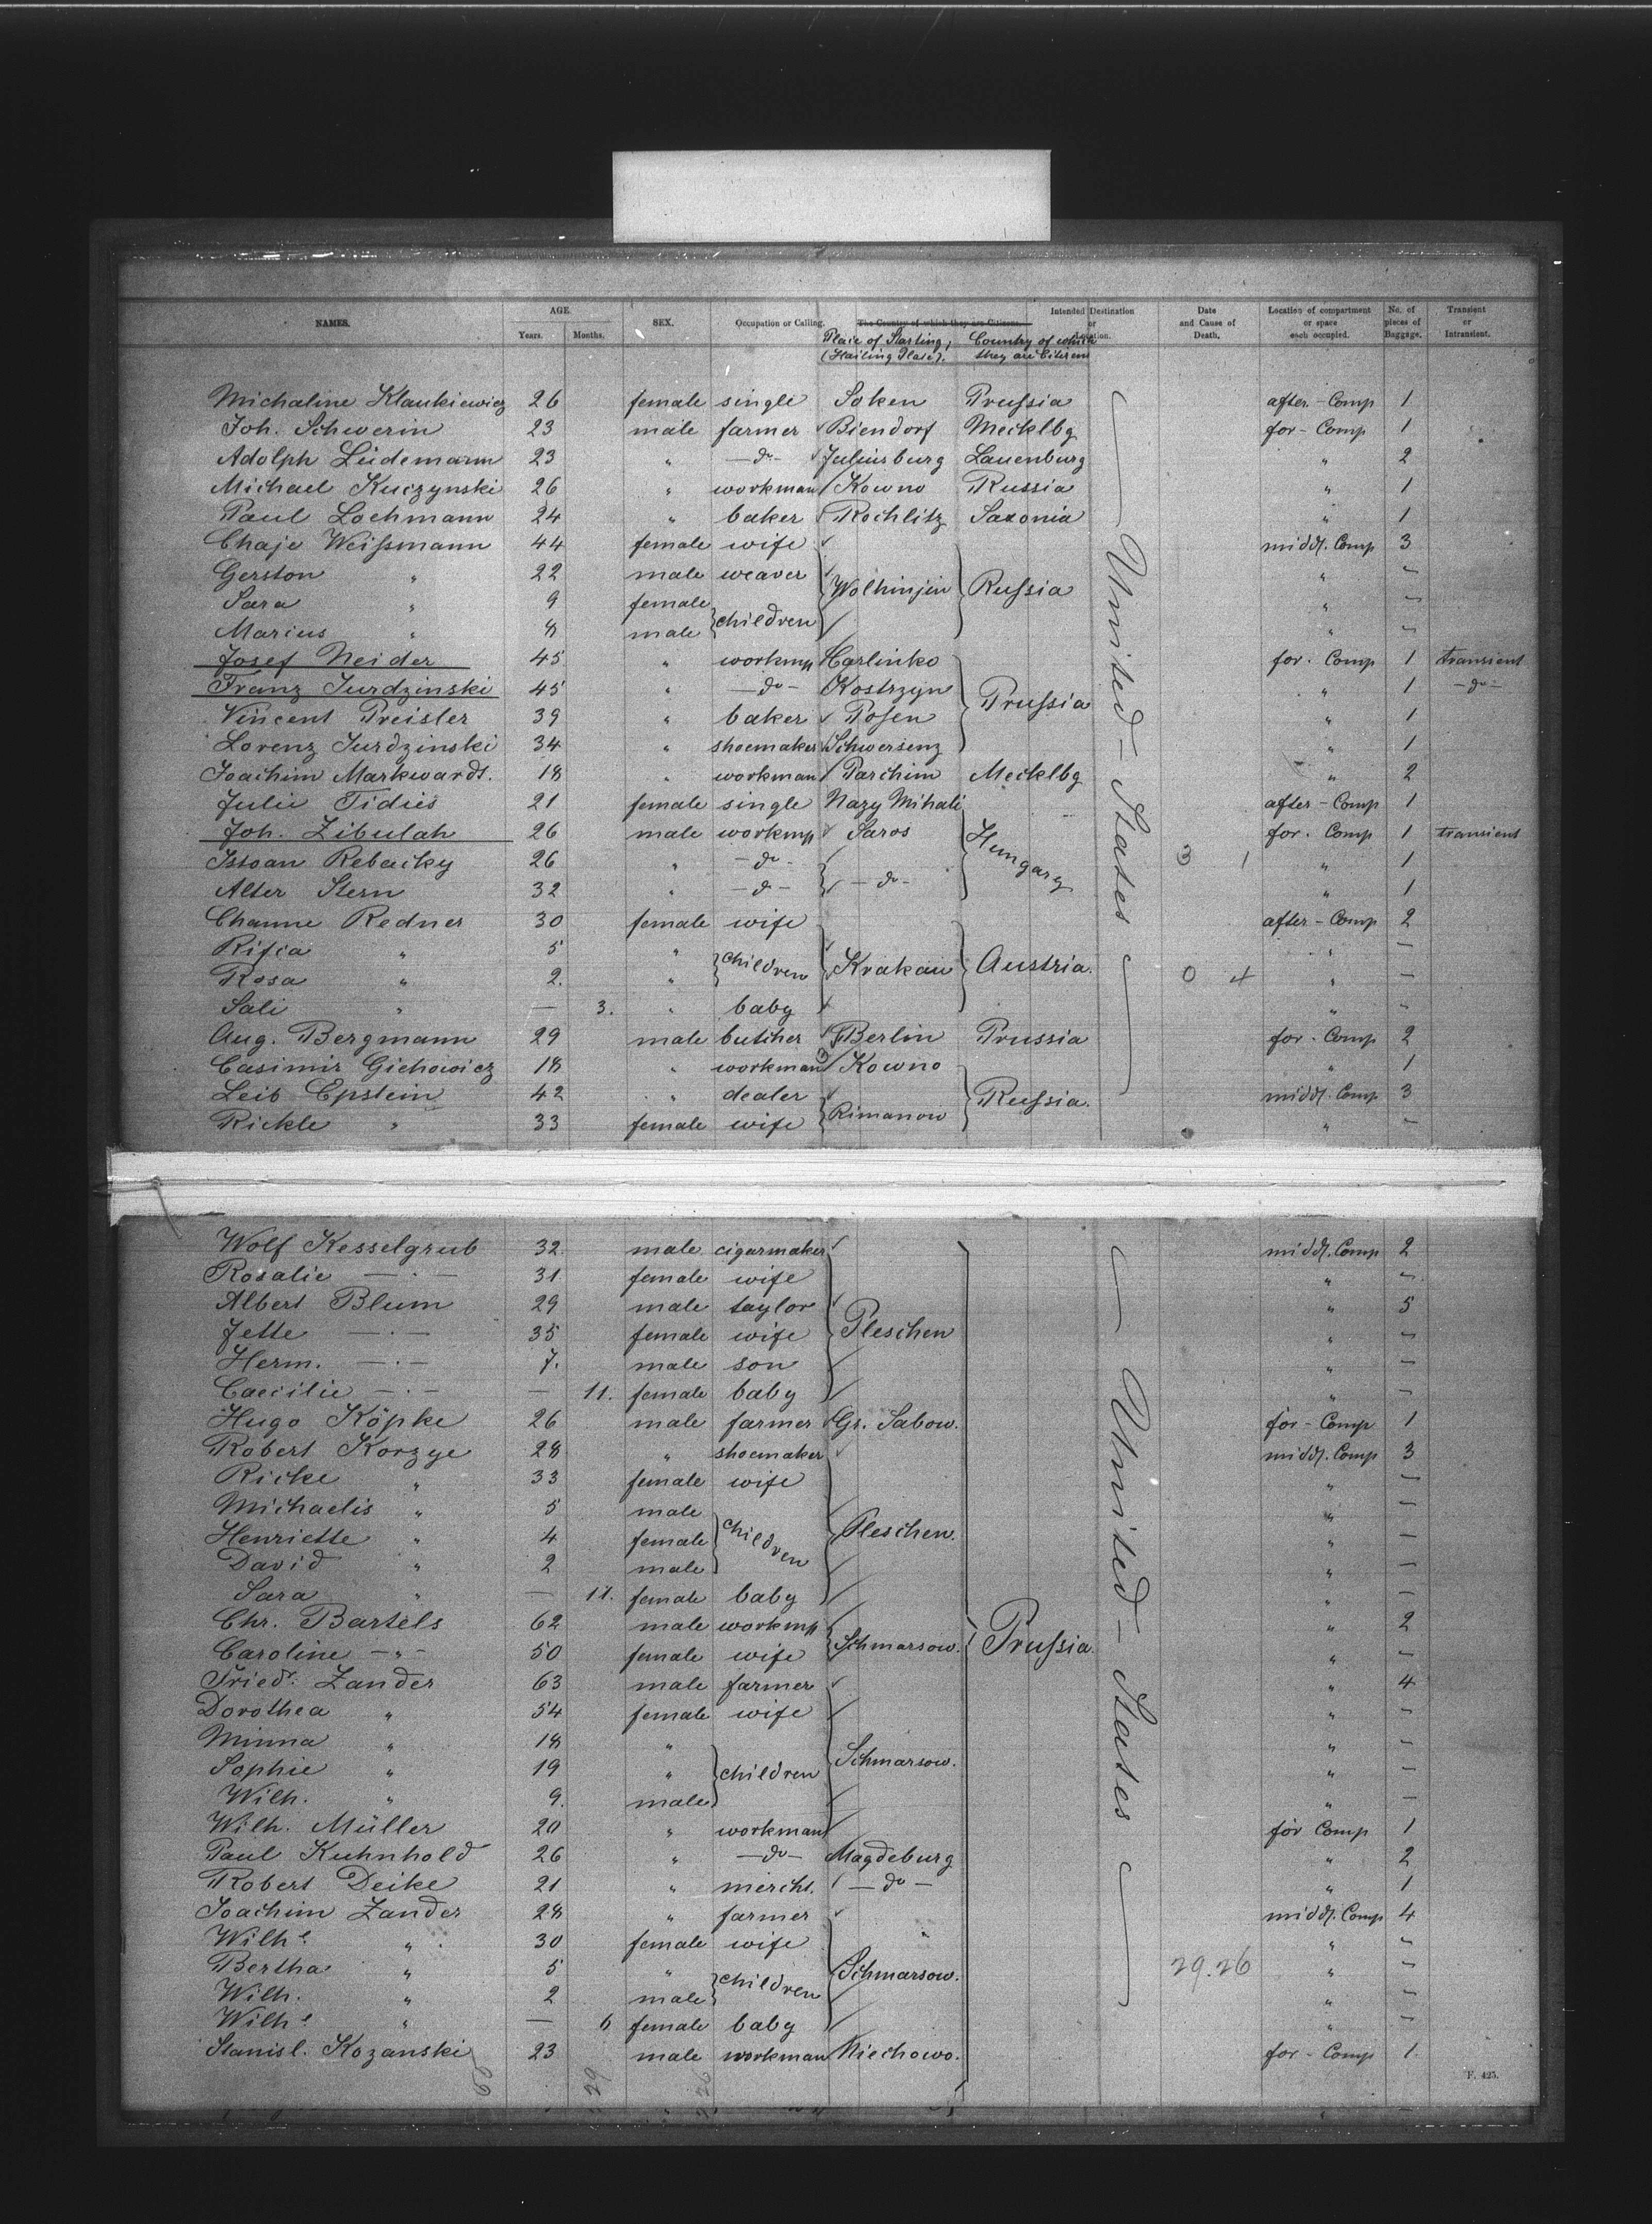 NAMES. AGE. Years. Months. SEX. Occupation or Calling. The Country of which they are Citizens. Intended Destination or Location. Date and Cause of Death. Location of compartment or space each occupied. No. of pieces of Baggage. Transient or Intransient.
Place of Starting, (Hailing Place). Country of which they are Citizens
Michaline Klaukiewicz 26 female single Soken Prussia after-Comp 1
Joh. Schwerin 23 male farmer Biendorf Mecklbg for-Comp 1
Adolph Lüdemann 23 " -do- Juliusburg Lauenburg " 2
Michael Kuczynski 26 " workman Kowno Russia " 1
Paul Lochmann 24 " baker Rochlitz Saxonia " 1
Chaje Weissmann 44 female wife middl. Comp 3
Gerston " 22 male weaver Wolhinjin Russia " -
Sara " 9 female children " -
Marius " 8 male " -
Josef Neider 45 " workmn Karlinko for. Comp 1 transient
Franz Jurdzinski 45 " -do- Kostrzyn Prussia " 1 -do-
Vincent Preisler 39 " baker Posen " 1
Lorenz Jurdzinski 34 " shoemaker Schwersenz " 1
Joachim Markwardt. 18 " workman Parchim Mecklbg " 2
Julie Tidies 21 female single Nazy Mihali after-Comp 1
Joh. Zibulah 26 male workmn Saros Hungary for. Comp 1 transient
Istvan Rebacky 26 " -do- -do- 3 1 " 1
Alter Stern 32 " -do- " 1
Channe Redner 30 female wife after-Comp 2
Rifca " 5 " children Krakau Austria. " -
Rosa " 2. " 0 4 " -
Sali " - 3. " baby " -
Aug. Bergmann 29 male butcher Berlin Prussia for-Comp 2
Casimir Gichowicz 18 " workman Kowno " 1
Leib Epstein 42 " dealer Rimanow Russia. middl. Comp 3
Rickle " 33 female wife " -
United-States
Wolf Kesselgrub 32 male cigarmaker middl. Comp 2
Rosalie -"- 31 female wife " -
Albert Blum 29 male taylor Pleschen " 5
Jette -"- 35 female wife " -
Herm. -"- 7. male son " -
Caecilie -"- - 11. female baby " -
Hugo Köpke 26 male farmer Gr. Sabow. for-Comp 1
Robert Korzye 28 " shoemaker middl. Comp 3
Ricke " 33 female wife " -
Michaelis " 5 male children Pleschen. " -
Henriette " 4 female " -
David " 2 male " -
Sara " - 11. female baby " -
Chr. Bartels 62 male workmn Schmarsow. Prussia. " 2
Caroline -"- 50 female wife " -
Fried. Zander 63 male farmer " 4
Dorothea " 54 female wife " -
Minna " 18 " children Schmarsow. " -
Sophie " 19 " " -
Wilh. " 9. male " -
Wilh. Müller 20 " workman for Comp 1
Paul Kuhnhold 26 " -do- Magdeburg " 2
Robert Deike 21 " mercht. -do- " 1
Joachim Zander 28 " farmer middl. Comp 4
Wilhe " 30 female wife " " -
Bertha " 5 " children Schmarsow. 29.26 " -
Wilh. " 2 male " -
Wilhe " - 6 female baby " -
Stanisl. Kozanski 23 male workman Niechowo. for-Comp 1.
United-States
29 26
F. 425.